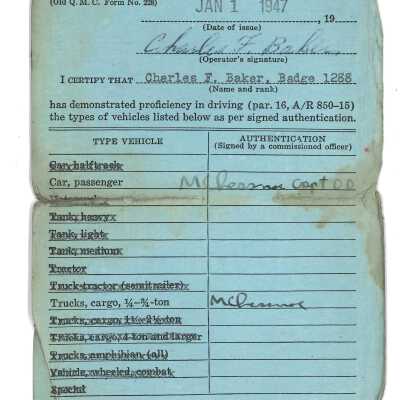 (Old Q. M. C. Form No. 228)
JAN 1 1947, 19
(Date of issue)
Charles F. Baker
(Operator's signature)
I CERTIFY THAT Charles F. Baker, Badge 1288
(Name and rank)
has demonstrated proficiency in driving (par. 16, A/R 850-15)
the types of vehicles listed below as per signed authentication.
TYPE VEHICLE AUTHENTICATION
(Signed by a commissioned officer)
Car halftrack
Car, passenger Capt
Tank, heavy
Tank, light
Tank, medium
Tractor
Truck-tractor (semitrailer)
Trucks, cargo, ¼-¾-ton
Trucks, cargo, 1½-2½-ton
Trucks, cargo, 4-ton and larger
Trucks, amphibian (all)
Vehicle, wheeled, combat
Special